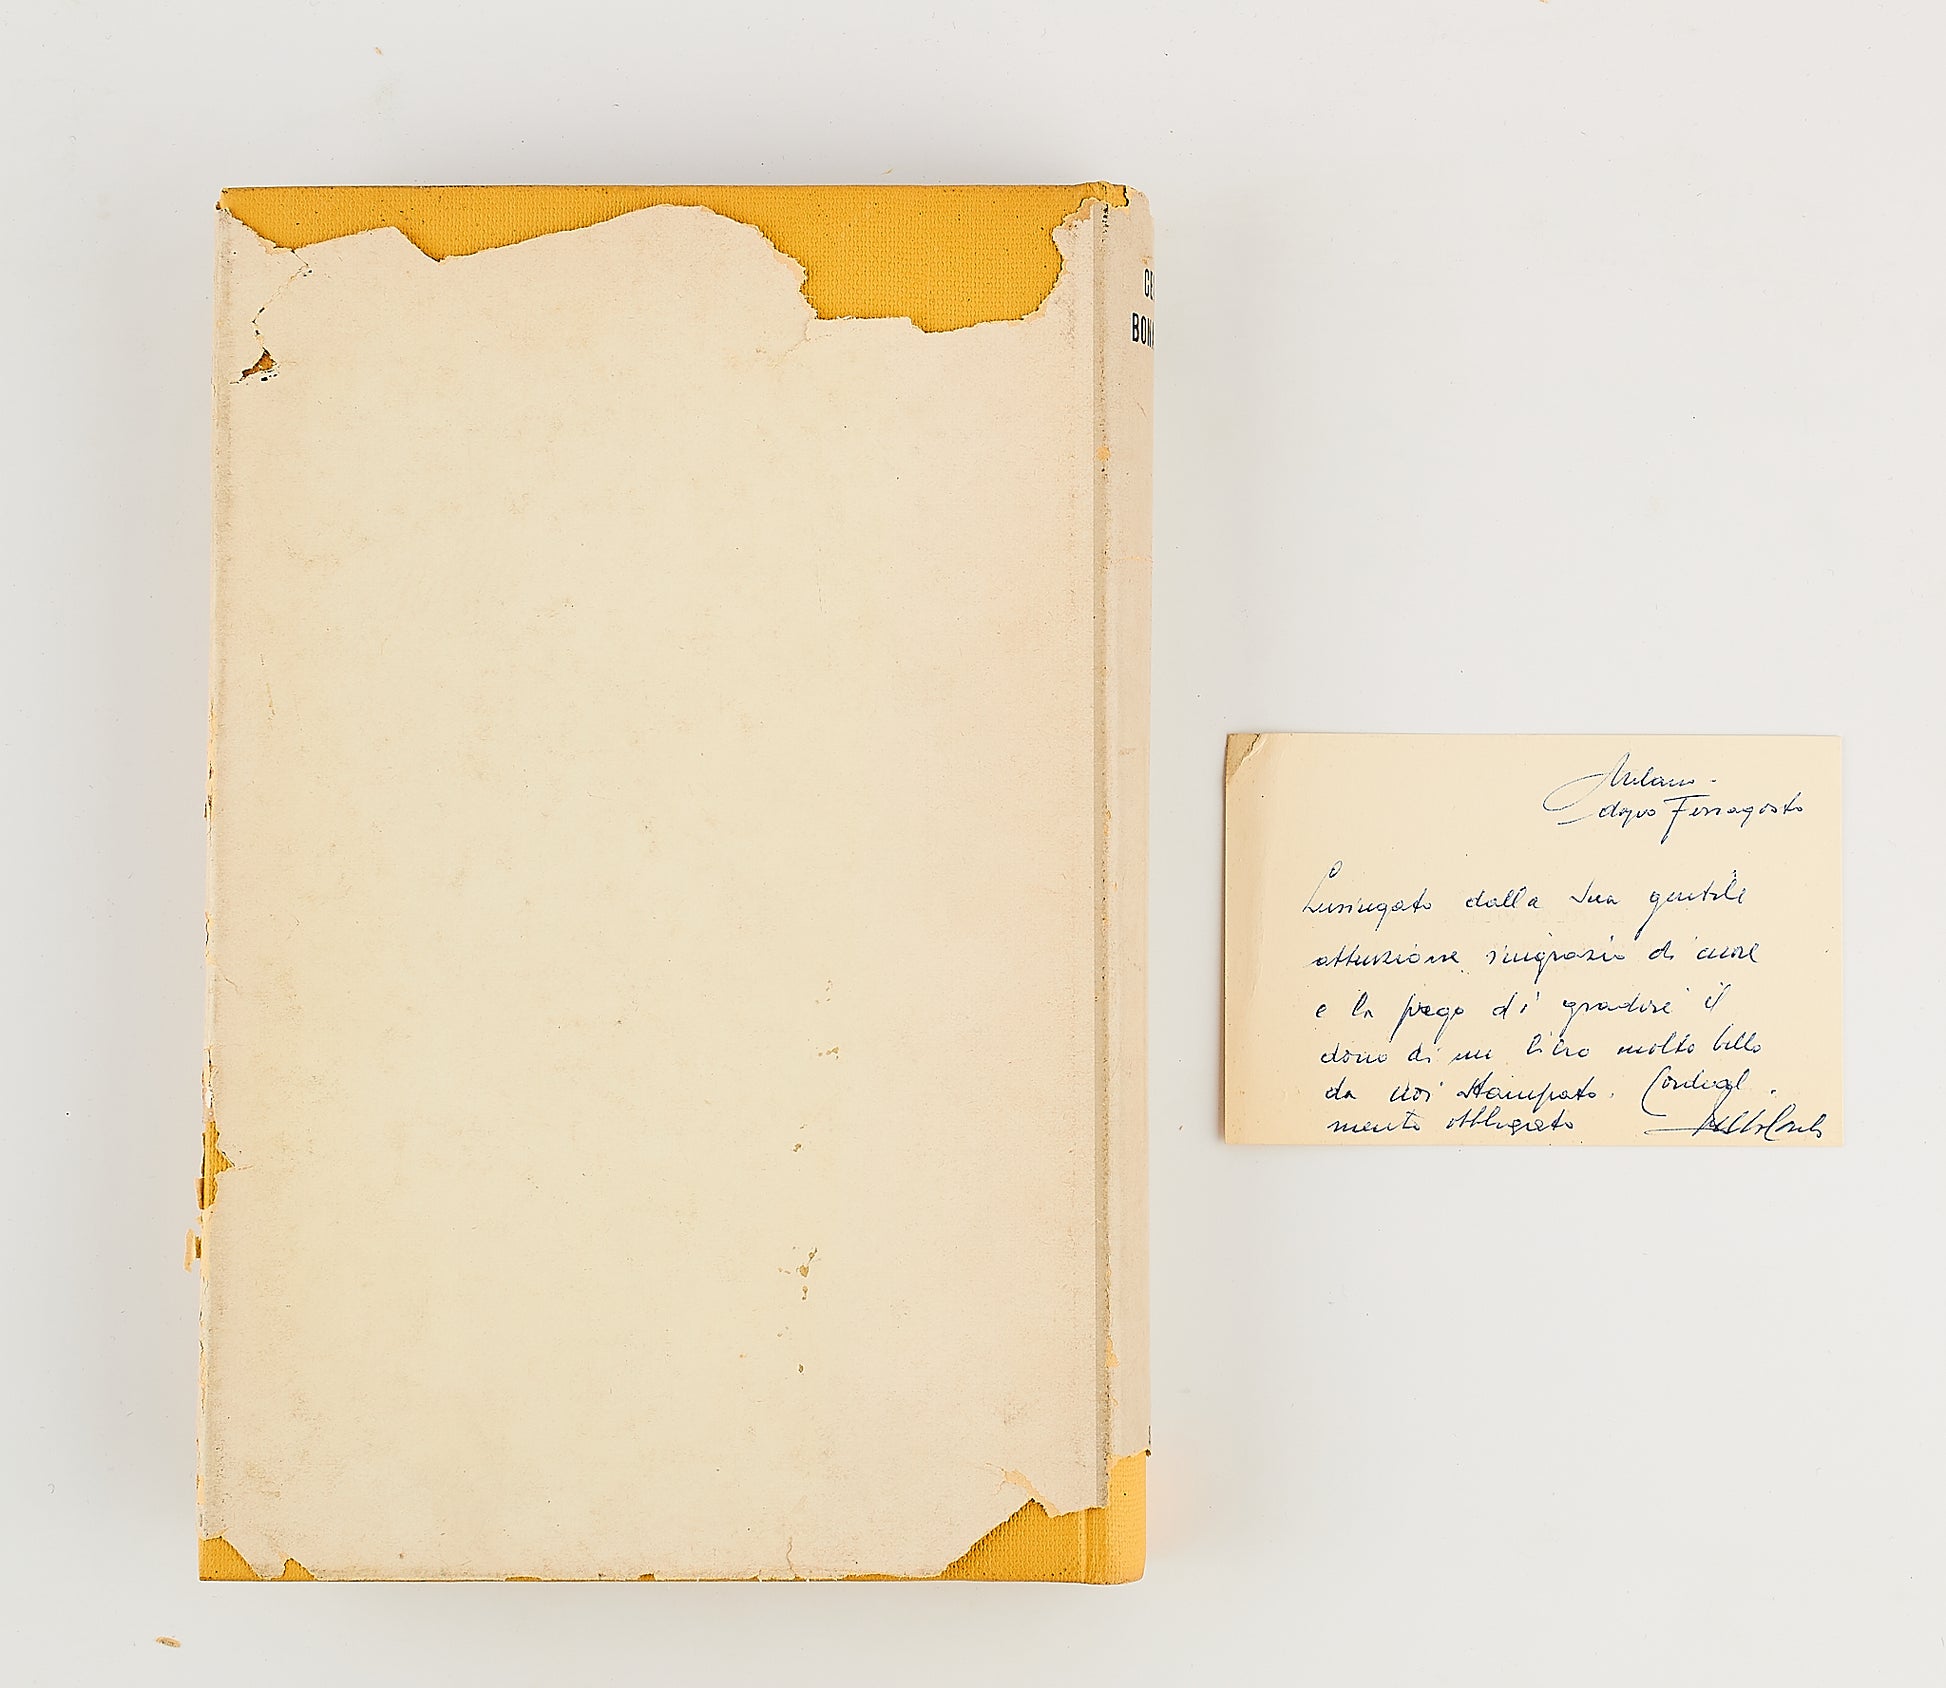 GE
BON
Milano -
dopo Ferragosto
Lusingato dalla Sua gentile
attenzione ringrazio di cuore
e la prego di gradire il
dono di un libro molto bello
da noi stampato. Cordial
mente obbligato